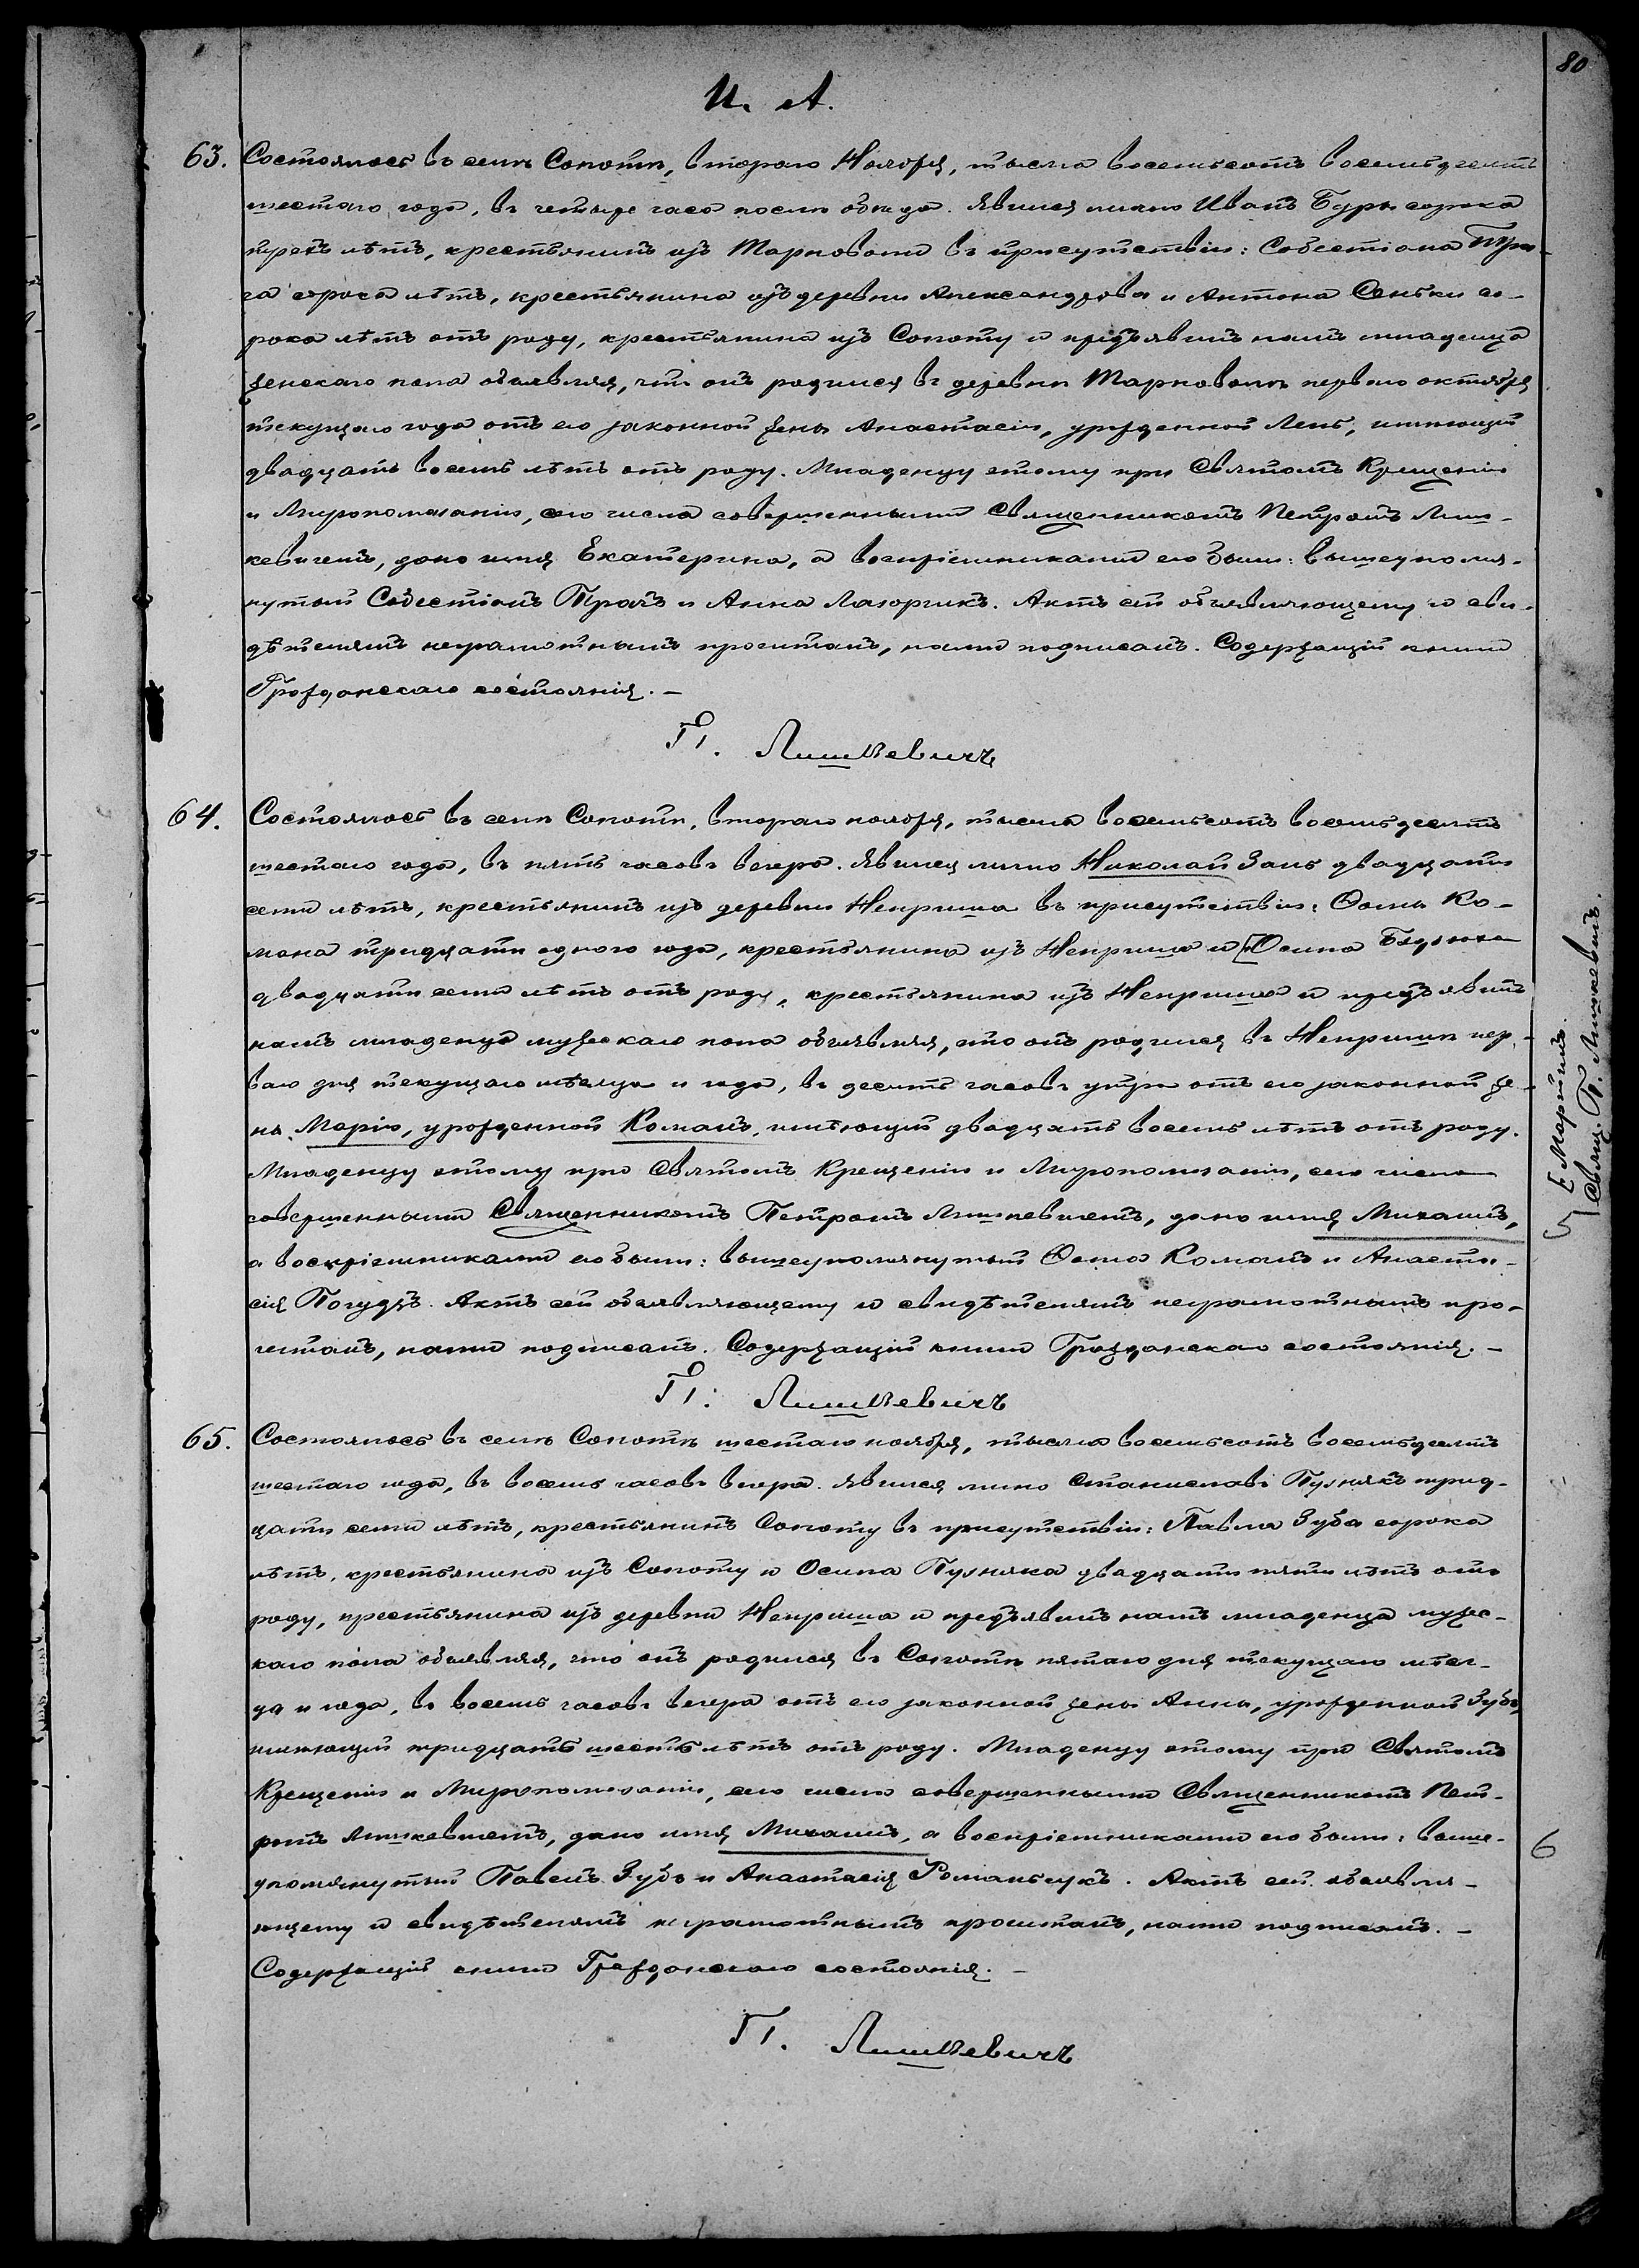 80
И. А.
63. Состоялось въ селѣ Сопотѣ, втораго Ноября, тысяча восемьсотъ восемьдесятъ
шестаго года, въ четыре часа послѣ обѣда. Явился лично Иванъ Буры сорока
трехъ лѣтъ, крестьянинъ изъ Марковочи въ присутствіи: Собестіана Тра-
ча сорока лѣтъ, крестьянина изъ деревни Александрова и Антона Сеньки со-
рока лѣтъ отъ роду, крестьянина изъ Сопоту и предъявилъ намъ младенца
женскаго пола объявляя, что онъ родился въ деревнѣ перваго октября
текущаго года отъ его законной жены Анастасіи, урожденной Лень, имѣющей
двадцать восемь лѣтъ отъ роду. Младенцу этому при Святомъ Крещеніи
и Миропомазаніи, сего числа совершенными Священникомъ Петромъ Лиш-
кевичемъ, дано имя Екатерина, а воспріемниками его были: вышеупомя-
нутый Собестіанъ Трачъ и Анна Лазорчикъ. Актъ сей объявляющему и сви-
дѣтелямъ неграмотнымъ прочитанъ, нами подписанъ. Содержащій книги
Гражданскаго состоянія. –
П. Лишкевичъ
64. Состоялось въ селѣ Сопотѣ, втораго ноября, тысяча восемьсотъ восемьдесятъ
шестаго года, въ пять часовъ вечера. Явился лично Николай Зань двадцати
семи лѣтъ, крестьянинъ изъ деревни Неприша въ присутствіи: Ѳомы Ко-
мана тридцати одного года, крестьянина изъ Неприша и Осипа
двадцати семи лѣтъ отъ роду, крестьянина изъ Неприша и предъявилъ
намъ младенца мужескаго пола объявляя, что онъ родился въ Непришѣ пер-
ваго дня текущаго мѣсяца и года, въ десять часовъ утра отъ его законной же-
ны Маріи, урожденной Команъ, имѣющей двадцать восемь лѣтъ отъ роду.
Младенцу этому при Святомъ Крещеніи и Миропомазаніи, сего числа
совершенными Священникомъ Петромъ Лишкевичемъ, дано имя Михаилъ,
а воспріемниками его были: вышеупомянутый Ѳома Команъ и Анаста-
сія Погудзъ. Актъ сей объявляющему и свидѣтелямъ неграмотнымъ про-
читанъ, нами подписанъ. Содержащій книги Гражданскаго состоянія. –
П. Лишкевичъ
Е Мартинъ.
Свящ. П. Лишкевичъ.
5
65. Состоялось въ селѣ Сопотѣ шестаго ноября, тысяча восемьсотъ восемьдесятъ
шестаго года, въ восемь часовъ вечера. Явился лично Станиславъ Пузнякъ трид-
цати семи лѣтъ, крестьянинъ Сопоту въ присутствіи: Павла Зуба сорока
лѣтъ, крестьянина изъ Сопоту и Осипа Пузняка двадцати пяти лѣтъ отъ
роду, крестьянина изъ деревни Неприша и предъявилъ намъ младенца мужес-
каго пола объявляя, что онъ родился въ Сопотѣ пятаго дня текущаго мѣся-
ца и года, въ восемь часовъ вечера отъ его законной жены Анны, урожденной Зубъ,
имѣющей тридцать шесть лѣтъ отъ роду. Младенцу этому при Святомъ
Крещеніи и Миропомазаніи, сего числа совершенными Священникомъ Пет-
ромъ Лишкевичемъ, дано имя Михаилъ, а воспріемниками его были: выше-
упомянутый Павелъ Зубъ и Анастасія Романьчукъ. Актъ сей объявля-
ющему и свидѣтелямъ неграмотнымъ прочитанъ, нами подписанъ. –
Содержащій книги Гражданскаго состоянія. –
П. Лишкевичъ
6